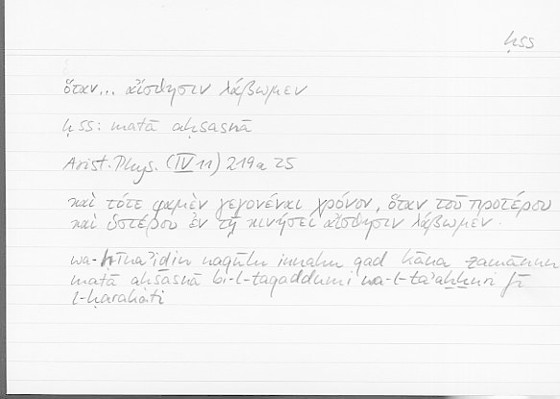 ḥss
ὅταν... αἴσθησιν λάβωμεν
ḥss: matā aḥsasnā
Arist. Phys. (IV 11) 219a 25
καὶ τότε φαμὲν γεγονέναι χρόνον, ὅταν τοῦ προτέρου
καὶ ὑστέρου ἐν τῇ κινήσει αἴσθησιν λάβωμεν.
wa-ḥīnaʾidin naqūlu innahu qad kāna zamānun
matā aḥsasnā bi-l-taqaddumi wa-l-taʾaḫḫuri fī
l-ḥarakati